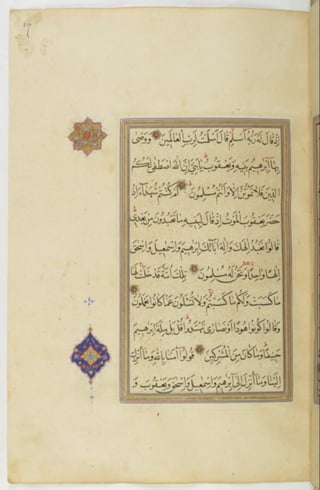 اِذْ قَالَ لَهُ رَبُّهُ اَسْلِمْ قَالَ اَسْلَمْتُ لِرَبِّ الْعَالَمِينَ وَوَصَّى
بِهَا اِبْرٰهِيمُ بَنِيهِ وَيَعْقُوبُ يَا بَنِيَّ اِنَّ اللّٰهَ اصْطَفٰى لَكُمُ
الدِّينَ فَلَا تَمُوتُنَّ اِلَّا وَاَنْتُمْ مُسْلِمُونَ اَمْ كُنْتُمْ شُهَدَآءَ اِذْ
حَضَرَ يَعْقُوبَ الْمَوْتُ اِذْ قَالَ لِبَنِيهِ مَا تَعْبُدُونَ مِنْ بَعْدِي
قَالُوا نَعْبُدُ اِلٰهَكَ وَاِلٰهَ اٰبَآئِكَ اِبْرٰهِيمَ وَاِسْمٰعِيلَ وَاِسْحٰقَ
اِلٰهًا وَاحِدًا وَنَحْنُ لَهُ مُسْلِمُونَ تِلْكَ اُمَّةٌ قَدْ خَلَتْ لَهَا
مَا كَسَبَتْ وَلَكُمْ مَا كَسَبْتُمْ وَلَا تُسْـَٔلُونَ عَمَّا كَانُوا يَعْمَلُونَ
وَقَالُوا كُونُوا هُودًا اَوْ نَصَارٰى تَهْتَدُوا قُلْ بَلْ مِلَّةَ اِبْرٰهِيمَ
حَنِيفًا وَمَا كَانَ مِنَ الْمُشْرِكِينَ قُولُوا اٰمَنَّا بِاللّٰهِ وَمَا اُنْزِلَ
اِلَيْنَا وَمَا اُنْزِلَ اِلٰى اِبْرٰهِيمَ وَاِسْمٰعِيلَ وَاِسْحٰقَ وَيَعْقُوبَ وَ